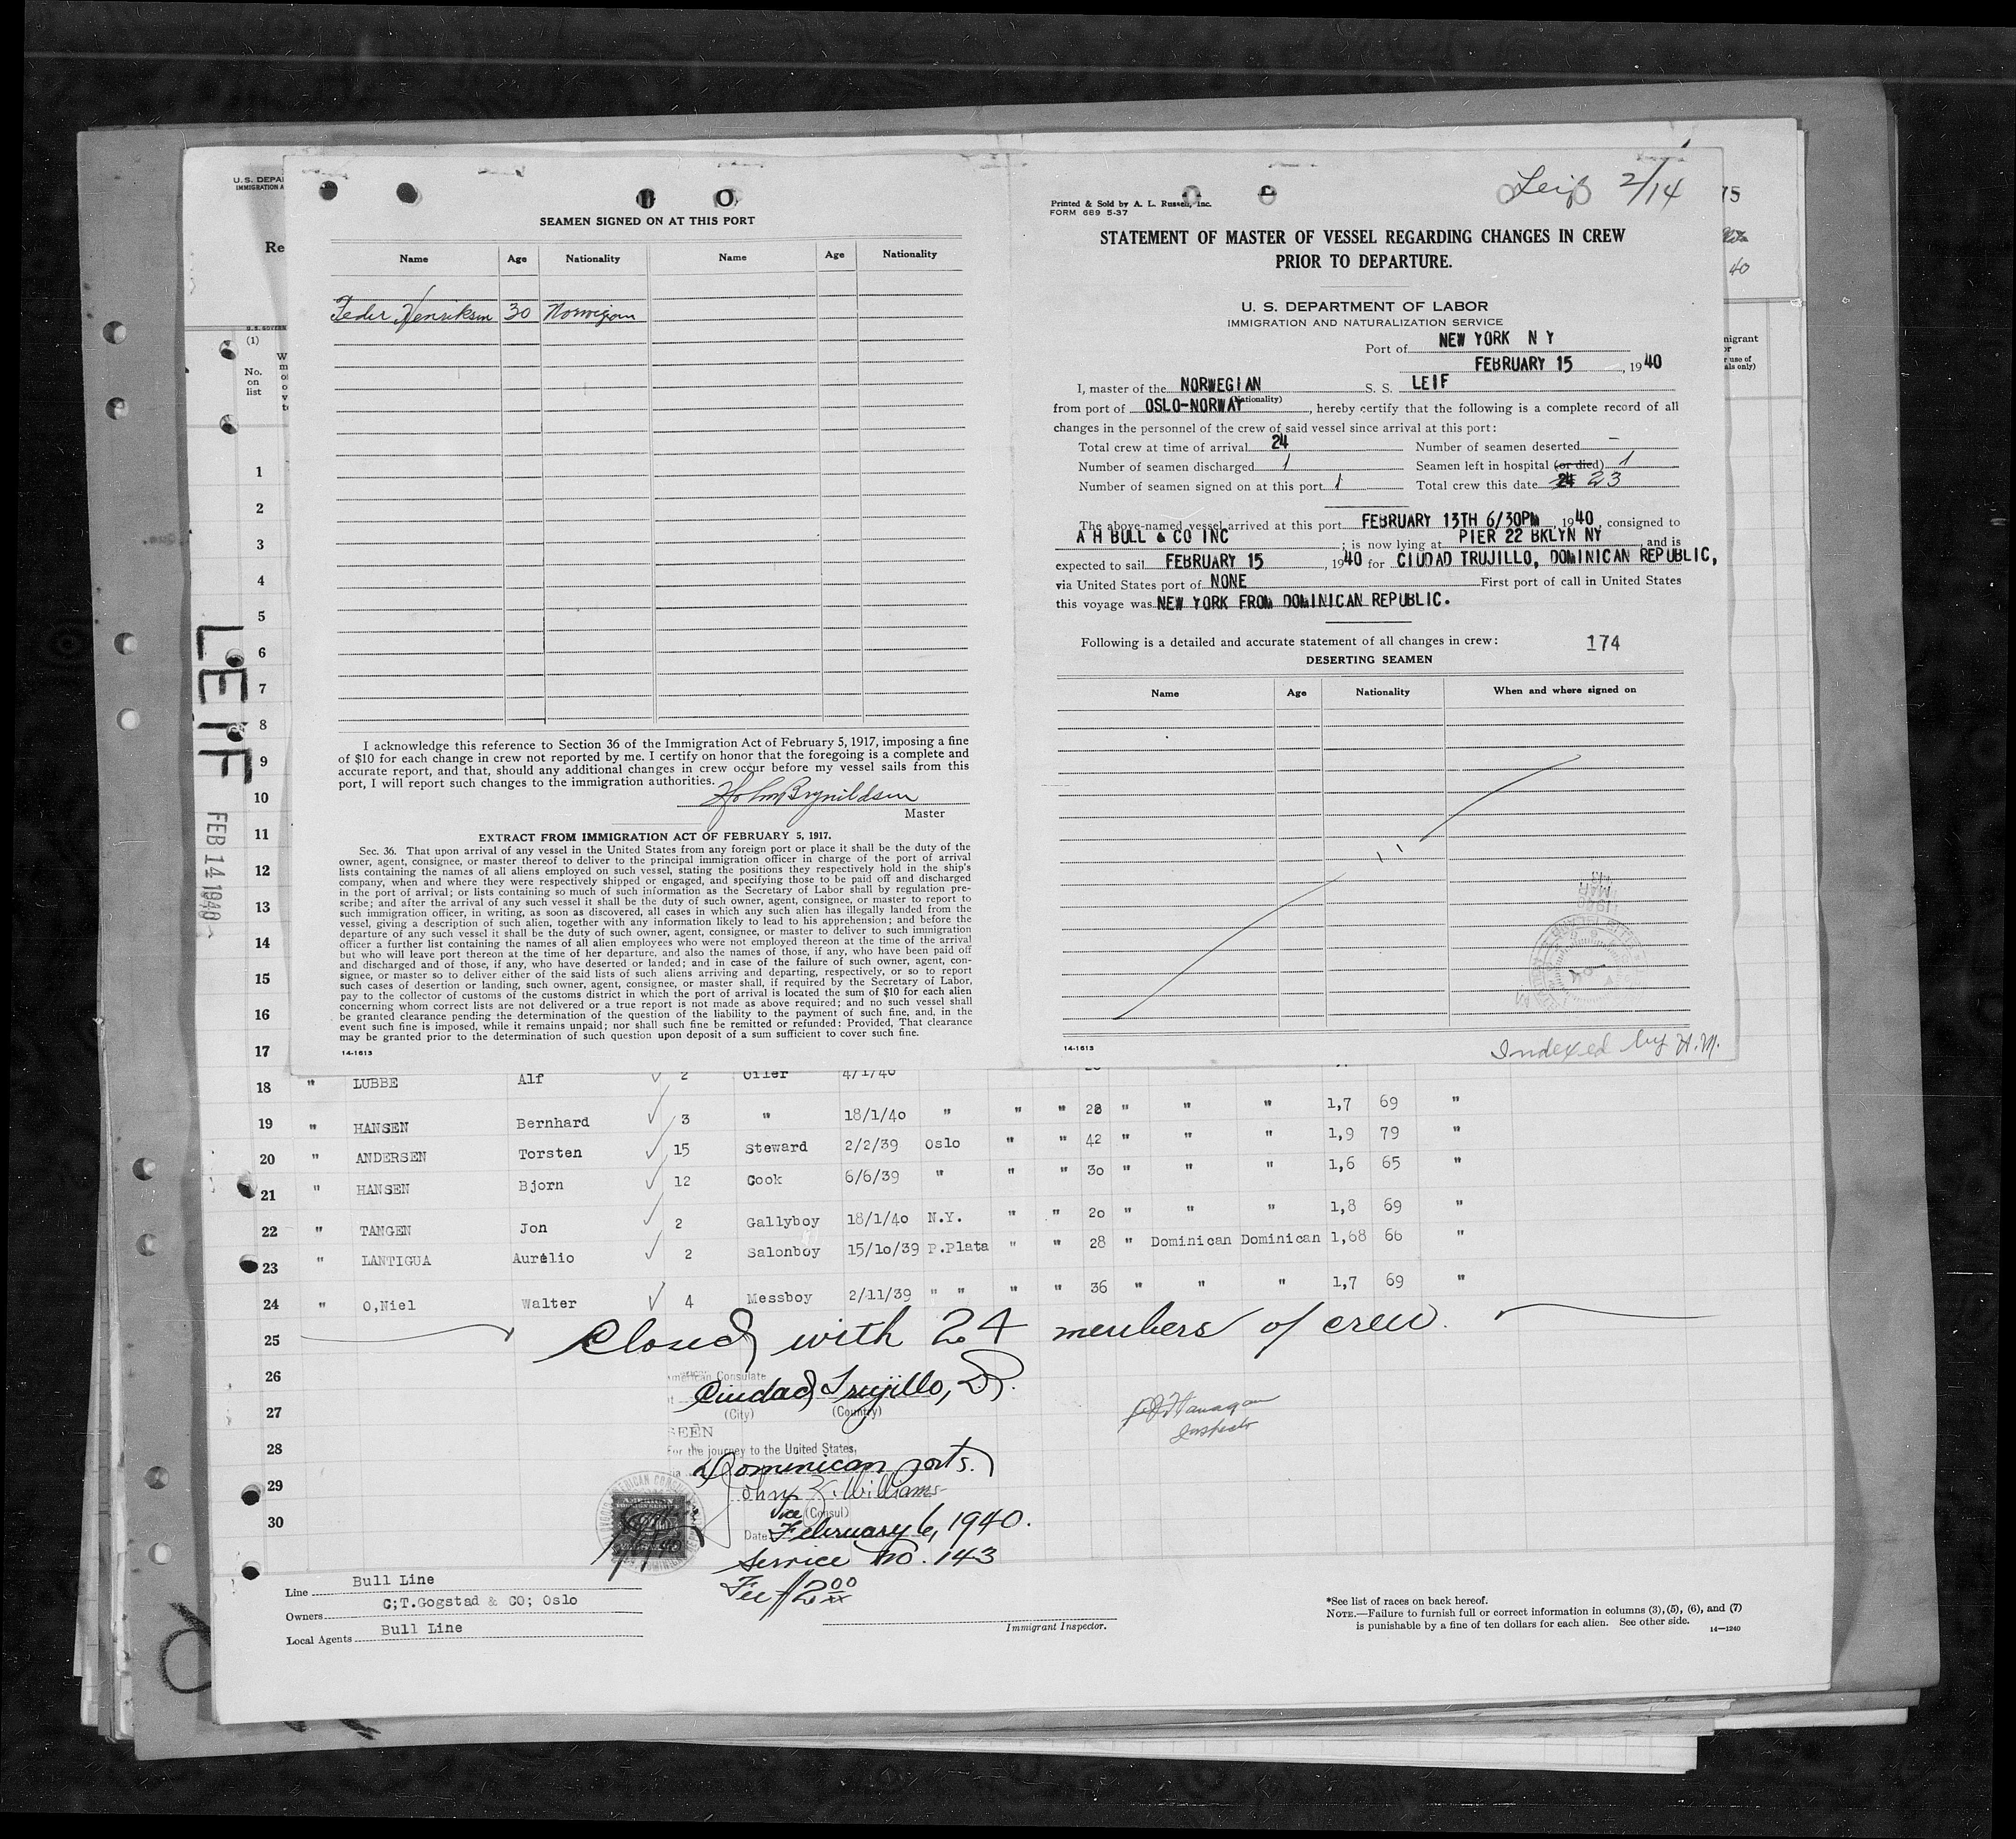 U. S. DEPA
IMMIGRATION A
Re
(1)
No.
on
list
SEAMEN SIGNED ON AT THIS PORT
Name Age Nationality Name Age Nationality
Peder Henriksen 30 Norwegian
I acknowledge this reference to Section 36 of the Immigration Act of February 5, 1917, imposing a fine
of $10 for each change in crew not reported by me. I certify on honor that the foregoing is a complete and
accurate report, and that, should any additional changes in crew occur before my vessel sails from this
port, I will report such changes to the immigration authorities.
Brynildsen
Master
EXTRACT FROM IMMIGRATION ACT OF FEBRUARY 5, 1917.
Sec. 36. That upon arrival of any vessel in the United States from any foreign port or place it shall be the duty of the
owner, agent, consignee, or master thereof to deliver to the principal immigration officer in charge of the port of arrival
lists containing the names of all aliens employed on such vessel, stating the positions they respectively hold in the ship's
company, when and where they were respectively shipped or engaged, and specifying those to be paid off and discharged
in the port of arrival; or lists containing so much of such information as the Secretary of Labor shall by regulation pre-
scribe; and after the arrival of any such vessel it shall be the duty of such owner, agent, consignee, or master to report to
such immigration officer, in writing, as soon as discovered, all cases in which any such alien has illegally landed from the
vessel, giving a description of such alien, together with any information likely to lead to his apprehension; and before the
departure of any such vessel it shall be the duty of such owner, agent, consignee, or master to deliver to such immigration
officer a further list containing the names of all alien employees who were not employed thereon at the time of the arrival
but who will leave port thereon at the time of her departure, and also the names of those, if any, who have been paid off
and discharged and of those, if any, who have deserted or landed; and in case of the failure of such owner, agent, con-
signee, or master so to deliver either of the said lists of such aliens arriving and departing, respectively, or so to report
such cases of desertion or landing, such owner, agent, consignee, or master shall, if required by the Secretary of Labor,
pay to the collector of customs of the customs district in which the port of arrival is located the sum of $10 for each alien
concerning whom correct lists are not delivered or a true report is not made as above required; and no such vessel shall
be granted clearance pending the determination of the question of the liability to the payment of such fine, and, in the
event such fine is imposed, while it remains unpaid; nor shall such fine be remitted or refunded: Provided, That clearance
may be granted prior to the determination of such question upon deposit of a sum sufficient to cover such fine.
14-1613
Leif 2/14
Printed & Sold by A. L. Russell, Inc.
FORM 689 5-37
STATEMENT OF MASTER OF VESSEL REGARDING CHANGES IN CREW
PRIOR TO DEPARTURE.
U. S. DEPARTMENT OF LABOR
IMMIGRATION AND NATURALIZATION SERVICE
Port of NEW YORK N Y
FEBRUARY 15, 1940
I, master of the NORWEGIAN S. S. LEIF
(Nationality)
from port of OSLO-NORWAY, hereby certify that the following is a complete record of all
changes in the personnel of the crew of said vessel since arrival at this port:
Total crew at time of arrival 24 Number of seamen deserted –
Number of seamen discharged 1 Seamen left in hospital (or died) 1
Number of seamen signed on at this port 1 Total crew this date 24 23
The above-named vessel arrived at this port FEBRUARY 13TH 6/30PM, 1940, consigned to
A H BULL & CO INC; is now lying at PIER 22 BKLYN NY and is
expected to sail FEBRUARY 15, 1940 for CIUDAD TRUJILLO, DOMINICAN REPUBLIC,
via United States port of NONE First port of call in United States
this voyage was NEW YORK FROM DOMINICAN REPUBLIC.
Following is a detailed and accurate statement of all changes in crew: 174
DESERTING SEAMEN
Name Age Nationality When and where signed on
14-1613
Indexed by H.M.
LEIF
FEB 14 1940
1
2
3
4
5
6
7
8
9
10
11
12
13
14
15
16
17
18 " LUBBE Alf 2 Oiler 4/1/40
19 " HANSEN Bernhard 3 " 18/1/40 " " " 28 " " " 1,7 69 "
20 " ANDERSEN Torsten 15 Steward 2/2/39 Oslo " " 42 " " " 1,9 79 "
21 " HANSEN Bjorn 12 Cook 6/6/39 " " " 30 " " " 1,6 65 "
22 " TANGEN Jon 2 Gallyboy 18/1/40 N.Y. " " 20 " " " 1,8 69 "
23 " LANTIGUA Aurelio 2 Salonboy 15/10/39 P.Plata " " 28 " Dominican Dominican 1,68 66 "
24 " O,Niel Walter 4 Messboy 2/11/39 " " " " 36 " " " 1,7 69 "
25 Closed with 24 members of crew.
26
27
28
29
30
American Consulate
Ciudad Trujillo, D.R.
(City) (Country)
SEEN
For the journey to the United States,
via Dominican ports.
John Z. Williams
Vice (Consul)
Date February 6, 1940.
Service No. 143
Fee $2.00
Flanagan
Inspector
Line Bull Line
Owners C;T.Gogstad & CO; Oslo
Local Agents Bull Line
Immigrant Inspector.
*See list of races on back hereof.
NOTE.—Failure to furnish full or correct information in columns (3), (5), (6), and (7)
is punishable by a fine of ten dollars for each alien. See other side.
14—1240